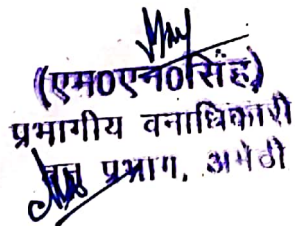 (एम०एन०सिंह)
प्रभागीय वनाधिकारी
प्रभाग, अमेठी